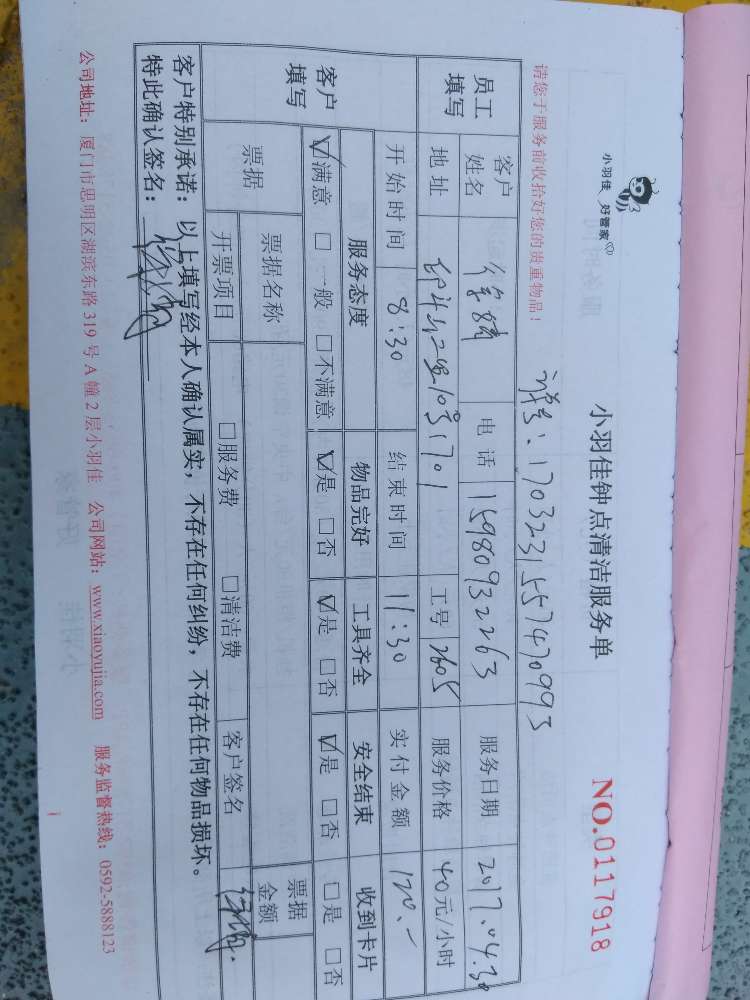 小羽佳 好管家
小羽佳钟点清洁服务单
NO.0117918
请您于服务前收拾好您的贵重物品！
单号：170323155747099 3
员工填写
客户姓名 电话 15980932263 服务日期 2017.04.30
地址 10号1701 工号 2605 服务价格 40元/小时
开始时间 8:30 结束时间 11:30 实付金额 120.-
客户填写
服务态度 物品完好 工具齐全 安全结束 收到卡片
☑满意 □一般 □不满意 ☑是 □否 ☑是 □否 ☑是 □否 □是 □否
票据 票据名称 票据金额
开票项目 □服务费 □清洁费 客户签名
客户特别承诺：以上填写经本人确认属实，不存在任何纠纷，不存在任何物品损坏。
特此确认签名：
公司地址：厦门市思明区湖滨东路 319 号 A 幢 2 层小羽佳 公司网站：www.xiaoyujia.com 服务监督热线：0592-5888123